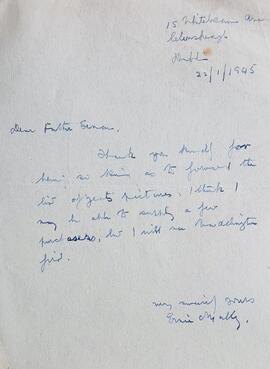 15 Whitebeam Ave
Clonskeagh
Dublin
22/1/1945
Dear Father Senan,
Thank you kindly for
being so kind as to forward the
list of Jack's pictures. I think I
may be able to supply a few
purchasers, but I will see
first.
very sincerely yours
Ernie O'Malley.